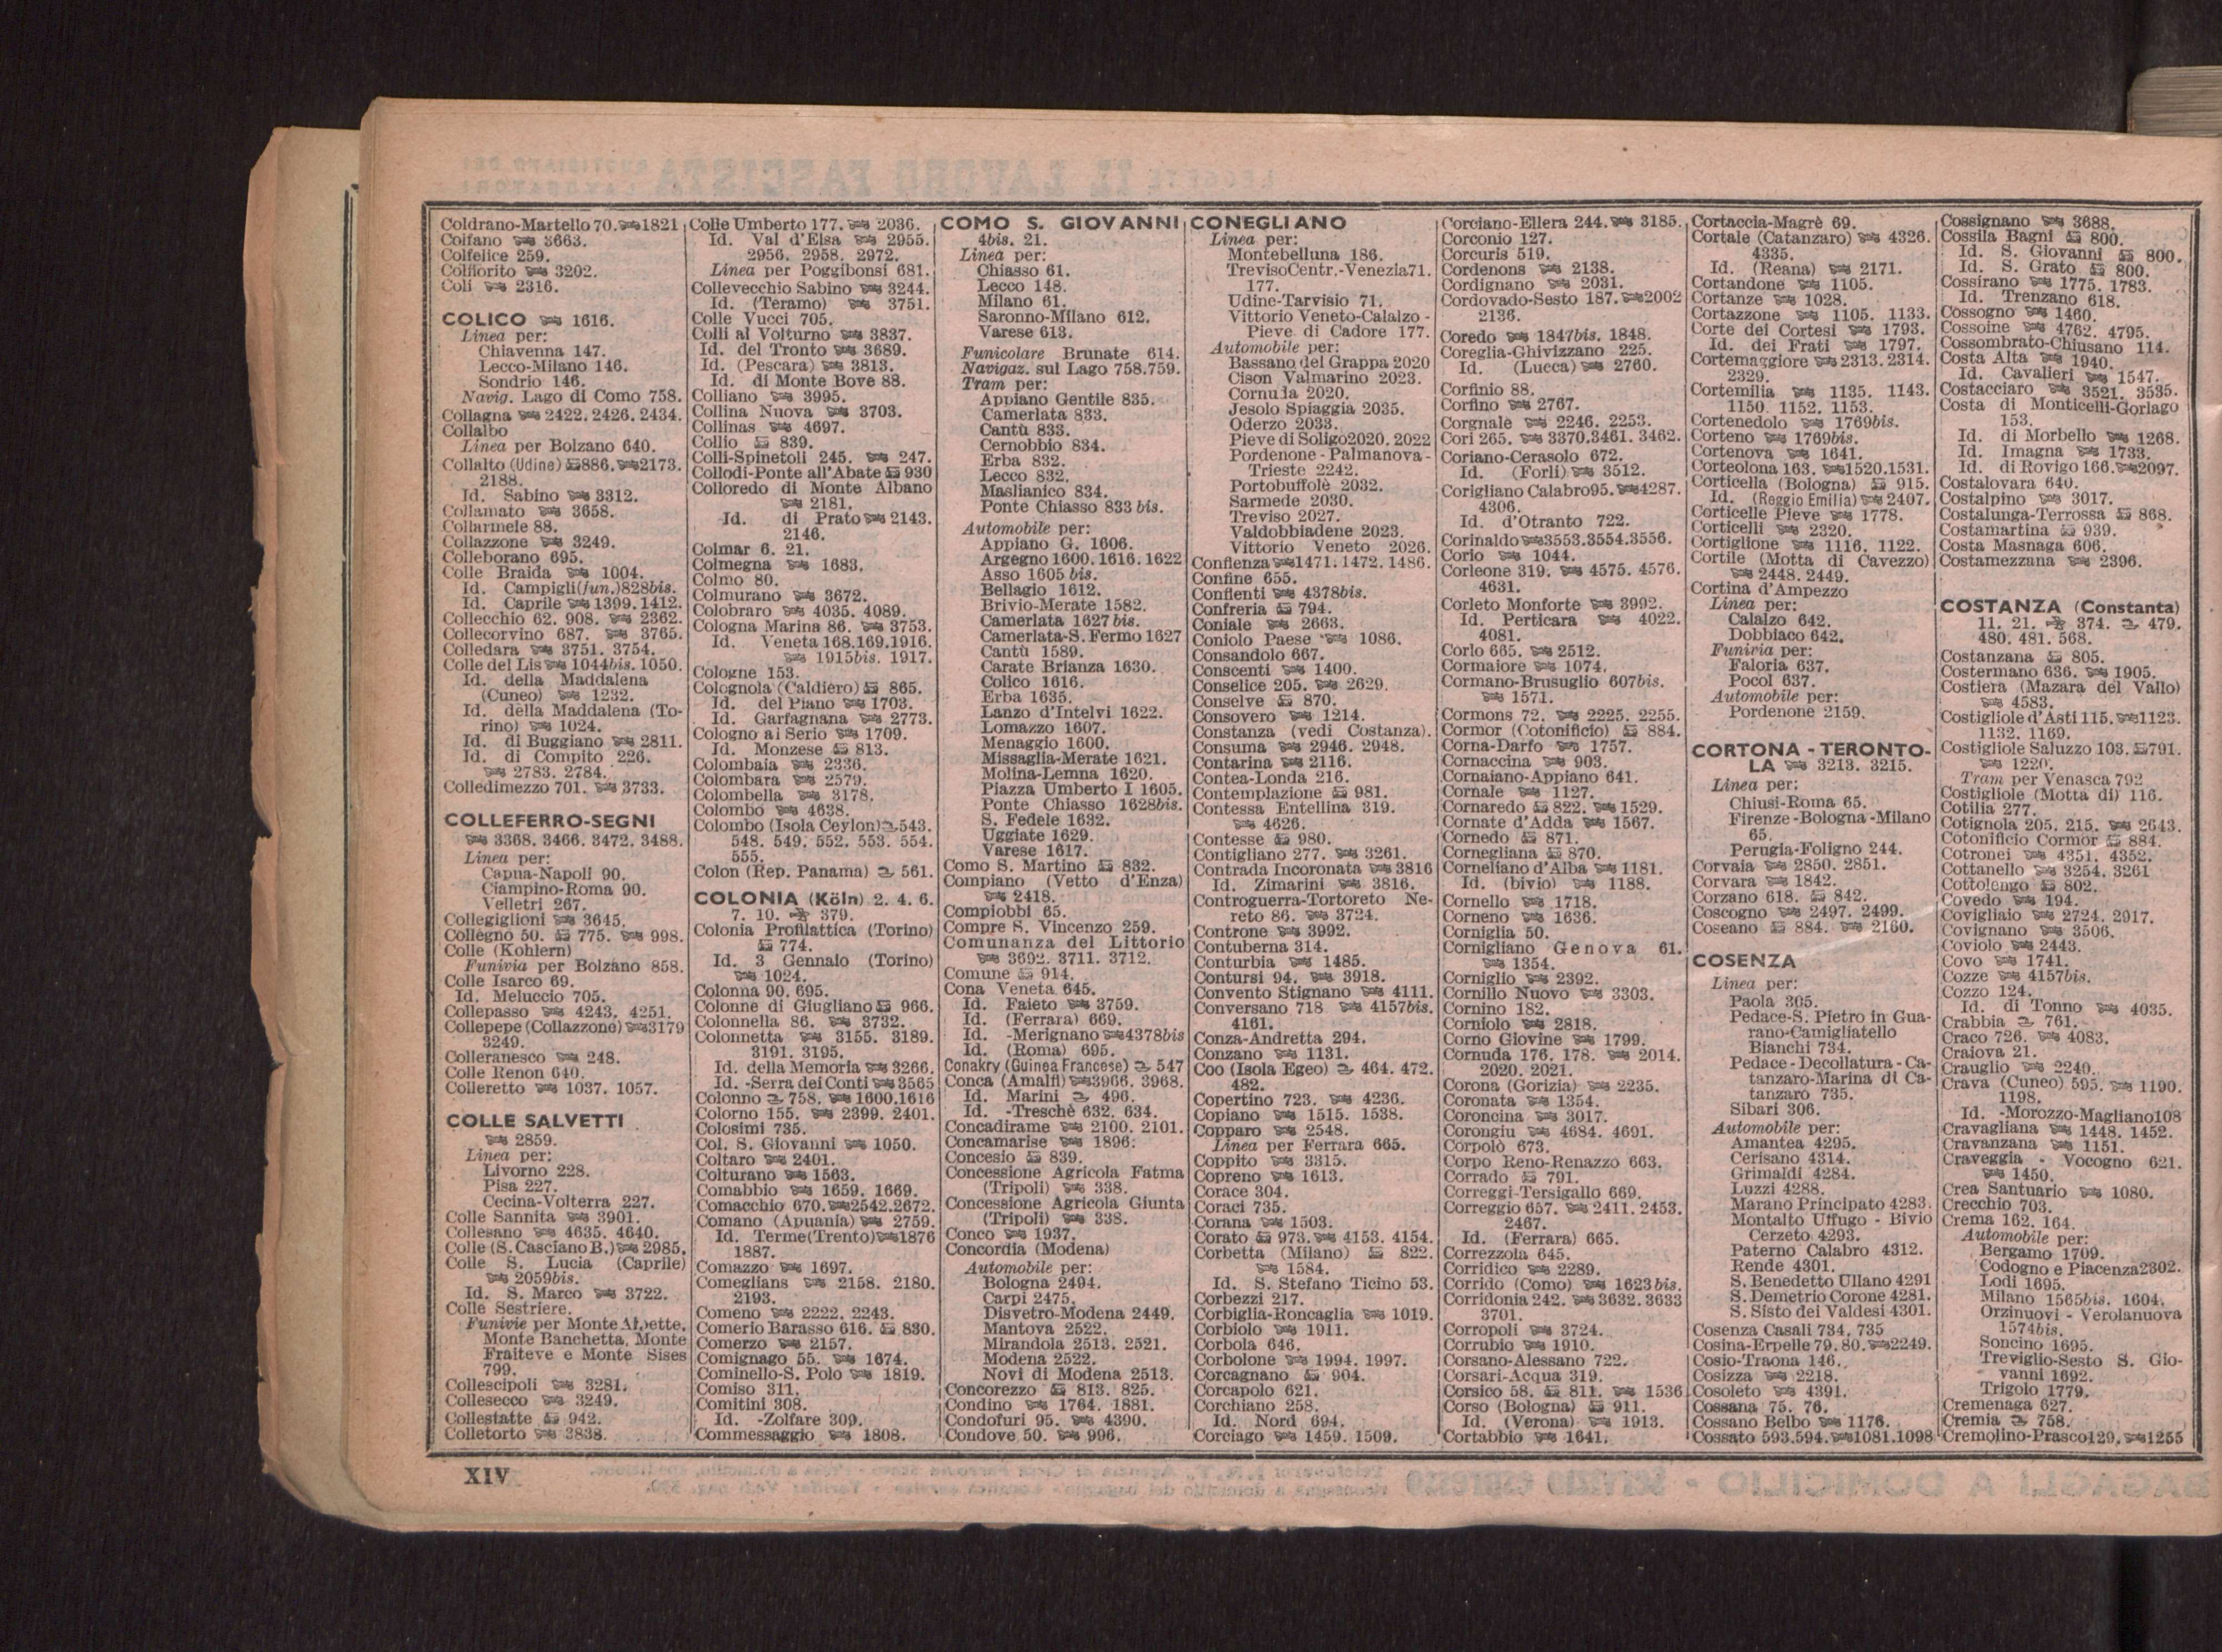 Coldrano-Martello 70. 1821
Colfano 3663.
Colfelice 259.
Colfiorito 3202.
Coli 2316.
COLICO 1616.
Linea per:
Chiavenna 147.
Lecco-Milano 146.
Sondrio 146.
Navig. Lago di Como 758.
Collagna 2422. 2426. 2434.
Collalbo
Linea per Bolzano 640.
Collalto (Udine) 886. 2173.
2188.
Id. Sabino 3312.
Collamato 3658.
Collarmele 88.
Collazzone 3249.
Colleborano 695.
Colle Braida 1004.
Id. Campigli (fun.) 828bis.
Id. Caprile 1399. 1412.
Collecchio 62. 908. 2362.
Collecorvino 687. 3765.
Colledara 3751. 3754.
Colle del Lis 1044bis. 1050.
Id. della Maddalena
(Cuneo) 1232.
Id. della Maddalena (To-
rino) 1024.
Id. di Buggiano 2811.
Id. di Compito 226.
2783. 2784.
Colledimezzo 701. 3733.
COLLEFERRO-SEGNI
3368. 3466. 3472. 3488.
Linea per:
Capua-Napoli 90.
Ciampino-Roma 90.
Velletri 267.
Collegiglioni 3645.
Collegno 50. 775. 998.
Colle (Kohlern)
Funivia per Bolzano 858.
Colle Isarco 69.
Id. Meluccio 705.
Collepasso 4243. 4251.
Collepepe (Collazzone) 3179
3249.
Colleranesco 248.
Colle Renon 640.
Colleretto 1037. 1057.
COLLE SALVETTI
2859.
Linea per:
Livorno 228.
Pisa 227.
Cecina-Volterra 227.
Colle Sannita 3901.
Collesano 4635. 4640.
Colle (S. Casciano B.) 2985.
Colle S. Lucia (Caprile)
2059bis.
Id. S. Marco 3722.
Colle Sestriere.
Funivie per Monte Alpette,
Monte Banchetta, Monte
Fraiteve e Monte Sises
799.
Collescipoli 3281.
Collesecco 3249.
Collestatte 942.
Colletorto 3838.
Colle Umberto 177. 2036.
Id. Val d'Elsa 2955.
2956. 2958. 2972.
Linea per Poggibonsi 681.
Collevecchio Sabino 3244.
Id. (Teramo) 3751.
Colle Vucci 705.
Colli al Volturno 3837.
Id. del Tronto 3689.
Id. (Pescara) 3813.
Id. di Monte Bove 88.
Colliano 3995.
Collina Nuova 3703.
Collinas 4697.
Collio 839.
Colli-Spinetoli 245. 247.
Collodi-Ponte all'Abate 930
Colloredo di Monte Albano
2181.
Id. di Prato 2143.
2146.
Colmar 6. 21.
Colmegna 1683.
Colmo 80.
Colmurano 3672.
Colobraro 4035. 4089.
Cologna Marina 86. 3753.
Id. Veneta 168.169.1916.
1915bis. 1917.
Cologne 153.
Colognola (Caldiero) 865.
Id. del Piano 1703.
Id. Garfagnana 2773.
Cologno al Serio 1709.
Id. Monzese 813.
Colombaia 2336.
Colombara 2579.
Colombella 3178.
Colombo 4638.
Colombo (Isola Ceylon) 543.
548. 549. 552. 553. 554.
555.
Colon (Rep. Panama) 561.
COLONIA (Köln) 2. 4. 6.
7. 10. 379.
Colonia Profilattica (Torino)
774.
Id. 3 Gennaio (Torino)
1024.
Colonna 90. 695.
Colonne di Giugliano 966.
Colonnella 86. 3732.
Colonnetta 3155. 3189.
3191. 3195.
Id. della Memoria 3266.
Id. -Serra dei Conti 3565
Colonno 758. 1600.1616
Colorno 155. 2399. 2401.
Colosimi 735.
Col. S. Giovanni 1050.
Coltaro 2401.
Colturano 1563.
Comabbio 1659. 1669.
Comacchio 670. 2542.2672.
Comano (Apuania) 2759.
Id. Terme (Trento) 1876
1887.
Comazzo 1697.
Comeglians 2158. 2180.
2193.
Comeno 2222. 2243.
Comerio Barasso 616. 830.
Comerzo 2157.
Comignago 55. 1674.
Cominello-S. Polo 1819.
Comiso 311.
Comitini 308.
Id. -Zolfare 309.
Commessaggio 1808.
COMO S. GIOVANNI
4bis. 21.
Linea per:
Chiasso 61.
Lecco 148.
Milano 61.
Saronno-Milano 612.
Varese 613.
Funicolare Brunate 614.
Navigaz. sul Lago 758.759.
Tram per:
Appiano Gentile 835.
Camerlata 833.
Cantù 833.
Cernobbio 834.
Erba 832.
Lecco 832.
Maslianico 834.
Ponte Chiasso 833 bis.
Automobile per:
Appiano G. 1606.
Argegno 1600. 1616. 1622
Asso 1605 bis.
Bellagio 1612.
Brivio-Merate 1582.
Camerlata 1627 bis.
Camerlata-S. Fermo 1627
Cantù 1589.
Carate Brianza 1630.
Colico 1616.
Erba 1635.
Lanzo d'Intelvi 1622.
Lomazzo 1607.
Menaggio 1600.
Missaglia-Merate 1621.
Molina-Lemna 1620.
Piazza Umberto I 1605.
Ponte Chiasso 1628bis.
S. Fedele 1632.
Uggiate 1629.
Varese 1617.
Como S. Martino 832.
Compiano (Vetto d'Enza)
2418.
Compiobbi 65.
Compre S. Vincenzo 259.
Comunanza del Littorio
3692. 3711. 3712.
Comune 914.
Cona Veneta 645.
Id. Faieto 3759.
Id. (Ferrara) 669.
Id. -Merignano 4378bis
Id. (Roma) 695.
Conakry (Guinea Francese) 547
Conca (Amalfi) 3966. 3968.
Id. Marini 496.
Id. -Treschè 632. 634.
Concadirame 2100. 2101.
Concamarise 1896.
Concesio 839.
Concessione Agricola Fatma
(Tripoli) 338.
Concessione Agricola Giunta
(Tripoli) 338.
Conco 1937.
Concordia (Modena)
Automobile per:
Bologna 2494.
Carpi 2475.
Disvetro-Modena 2449.
Mantova 2522.
Mirandola 2513. 2521.
Modena 2522.
Novi di Modena 2513.
Concorezzo 813. 825.
Condino 1764. 1881.
Condofuri 95. 4390.
Condove 50. 996.
CONEGLIANO
Linea per:
Montebelluna 186.
Treviso Centr.-Venezia 71.
177.
Udine-Tarvisio 71.
Vittorio Veneto-Calalzo -
Pieve di Cadore 177.
Automobile per:
Bassano del Grappa 2020
Cison Valmarino 2023.
Cornuda 2020.
Jesolo Spiaggia 2035.
Oderzo 2033.
Pieve di Soligo 2020. 2022
Pordenone - Palmanova -
Trieste 2242.
Portobuffolè 2032.
Sarmede 2030.
Treviso 2027.
Valdobbiadene 2023.
Vittorio Veneto 2026.
Confienza 1471. 1472. 1486.
Confine 655.
Conflenti 4378bis.
Confreria 794.
Coniale 2663.
Coniolo Paese 1086.
Consandolo 667.
Conscenti 1400.
Conselice 205. 2629.
Conselve 870.
Consovero 1214.
Constanza (vedi Costanza).
Consuma 2946. 2948.
Contarina 2116.
Contea-Londa 216.
Contemplazione 981.
Contessa Entellina 319.
4626.
Contesse 980.
Contigliano 277. 3261.
Contrada Incoronata 3816
Id. Zimarini 3816.
Controguerra-Tortoreto Ne-
reto 86. 3724.
Controne 3992.
Contuberna 314.
Conturbia 1485.
Contursi 94. 3918.
Convento Stignano 4111.
Conversano 718 4157bis.
4161.
Conza-Andretta 294.
Conzano 1131.
Coo (Isola Egeo) 464. 472.
482.
Copertino 723. 4236.
Copiano 1515. 1538.
Copparo 2548.
Linea per Ferrara 665.
Coppito 3315.
Copreno 1613.
Corace 304.
Coraci 735.
Corana 1503.
Corato 973. 4153. 4154.
Corbetta (Milano) 822.
1584.
Id. S. Stefano Ticino 53.
Corbezzi 217.
Corbiglia-Roncaglia 1019.
Corbiolo 1911.
Corbola 646.
Corbolone 1994. 1997.
Corcagnano 904.
Corcapolo 621.
Corchiano 258.
Id. Nord 694.
Corciago 1459. 1509.
Corciano-Ellera 244. 3185.
Corconio 127.
Corcuris 519.
Cordenons 2138.
Cordignano 2031.
Cordovado-Sesto 187. 2002
2136.
Coredo 1847bis. 1848.
Coreglia-Ghivizzano 225.
Id. (Lucca) 2760.
Corfinio 88.
Corfino 2767.
Corgnale 2246. 2253.
Cori 265. 3370.3461. 3462.
Coriano-Cerasolo 672.
Id. (Forlì) 3512.
Corigliano Calabro 95. 4287.
4306.
Id. d'Otranto 722.
Corinaldo 3553.3554.3556.
Corio 1044.
Corleone 319. 4575. 4576.
4631.
Corleto Monforte 3992.
Id. Perticara 4022.
4081.
Corlo 665. 2512.
Cormaiore 1074.
Cormano-Brusuglio 607bis.
1571.
Cormons 72. 2225. 2255.
Cormor (Cotonificio) 884.
Corna-Darfo 1757.
Cornaccina 903.
Cornaiano-Appiano 641.
Cornale 1127.
Cornaredo 822. 1529.
Cornate d'Adda 1567.
Cornedo 871.
Cornegliana 870.
Corneliano d'Alba 1181.
Id. (bivio) 1188.
Cornello 1718.
Corneno 1636.
Corniglia 50.
Cornigliano Genova 61.
1354.
Corniglio 2392.
Cornillo Nuovo 3303.
Cornino 182.
Corniolo 2818.
Corno Giovine 1799.
Cornuda 176. 178. 2014.
2020. 2021.
Corona (Gorizia) 2235.
Coronata 1354.
Coroncina 3017.
Corongiu 4684. 4691.
Corpolò 673.
Corpo Reno-Renazzo 663.
Corrado 791.
Correggi-Tersigallo 669.
Correggio 657. 2411. 2453.
2467.
Id. (Ferrara) 665.
Correzzola 645.
Corridico 2289.
Corrido (Como) 1623bis.
Corridonia 242. 3632. 3633
3701.
Corropoli 3724.
Corrubio 1910.
Corsano-Alessano 722.
Corsari-Acqua 319.
Corsico 58. 811. 1536
Corso (Bologna) 911.
Id. (Verona) 1913.
Cortabbio 1641.
Cortaccia-Magrè 69.
Cortale (Catanzaro) 4326.
4335.
Id. (Reana) 2171.
Cortandone 1105.
Cortanze 1028.
Cortazzone 1105. 1133.
Corte dei Cortesi 1793.
Id. dei Frati 1797.
Cortemaggiore 2313. 2314.
2329.
Cortemilia 1135. 1143.
1150. 1152. 1153.
Cortenedolo 1769bis.
Corteno 1769bis.
Cortenova 1641.
Corteolona 163. 1520.1531.
Corticella (Bologna) 915.
Id. (Reggio Emilia) 2407.
Corticelle Pieve 1778.
Corticelli 2320.
Cortiglione 1116. 1122.
Cortile (Motta di Cavezzo)
2448. 2449.
Cortina d'Ampezzo
Linea per:
Calalzo 642.
Dobbiaco 642.
Funivia per:
Faloria 637.
Pocol 637.
Automobile per:
Pordenone 2159.
CORTONA - TERONTO-
LA 3213. 3215.
Linea per:
Chiusi-Roma 65.
Firenze-Bologna-Milano
65.
Perugia-Foligno 244.
Corvaia 2850. 2851.
Corvara 1842.
Corzano 618. 842.
Coscogno 2497. 2499.
Coseano 884. 2160.
COSENZA
Linea per:
Paola 305.
Pedace-S. Pietro in Gua-
rano-Camigliatello
Bianchi 734.
Pedace-Decollatura-Ca-
tanzaro-Marina di Ca-
tanzaro 735.
Sibari 306.
Automobile per:
Amantea 4295.
Cerisano 4314.
Grimaldi 4284.
Luzzi 4288.
Marano Principato 4283.
Montalto Uffugo - Bivio
Cerzeto 4293.
Paterno Calabro 4312.
Rende 4301.
S. Benedetto Ullano 4291
S. Demetrio Corone 4281.
S. Sisto dei Valdesi 4301.
Cosenza Casali 734. 735
Cosina-Erpelle 79. 80. 2249.
Cosio-Traona 146.
Cosizza 2218.
Cosoleto 4391.
Cossana 75. 76.
Cossano Belbo 1176.
Cossato 593.594. 1081.1098
Cossignano 3688.
Cossila Bagni 800.
Id. S. Giovanni 800.
Id. S. Grato 800.
Cossirano 1775. 1783.
Id. Trenzano 618.
Cossogno 1460.
Cossoine 4762. 4795.
Cossombrato-Chiusano 114.
Costa Alta 1940.
Id. Cavalieri 1547.
Costacciaro 3521. 3535.
Costa di Monticelli-Gorlago
153.
Id. di Morbello 1268.
Id. Imagna 1733.
Id. di Rovigo 166. 2097.
Costalovara 640.
Costalpino 3017.
Costalunga-Terrossa 868.
Costamartina 939.
Costa Masnaga 606.
Costamezzana 2396.
COSTANZA (Constanta)
11. 21. 374. 479.
480. 481. 568.
Costanzana 805.
Costermano 636. 1905.
Costiera (Mazara del Vallo)
4583.
Costigliole d'Asti 115. 1123.
1132. 1169.
Costigliole Saluzzo 103. 791.
1220.
Tram per Venasca 792
Costigliole (Motta di) 116.
Cotilia 277.
Cotignola 205. 215. 2643.
Cotonificio Cormor 884.
Cotronei 4351. 4352.
Cottanello 3254. 3261
Cottolengo 802.
Covedo 194.
Covigliaio 2724. 2917.
Covignano 3506.
Coviolo 2443.
Covo 1741.
Cozze 4157bis.
Cozzo 124.
Id. di Tonno 4035.
Crabbia 761.
Craco 726. 4083.
Craiova 21.
Crauglio 2240.
Crava (Cuneo) 595. 1190.
1198.
Id. -Morozzo-Magliano 108
Cravagliana 1448. 1452.
Cravanzana 1151.
Craveggia - Vocogno 621.
1450.
Crea Santuario 1080.
Crecchio 703.
Crema 162. 164.
Automobile per:
Bergamo 1709.
Codogno e Piacenza 2302.
Lodi 1695.
Milano 1565bis. 1604.
Orzinuovi - Verolanuova
1574bis.
Soncino 1695.
Treviglio-Sesto S. Gio-
vanni 1692.
Trigolo 1779.
Cremenaga 627.
Cremia 758.
Cremolino-Prasco 129. 1255
XIV